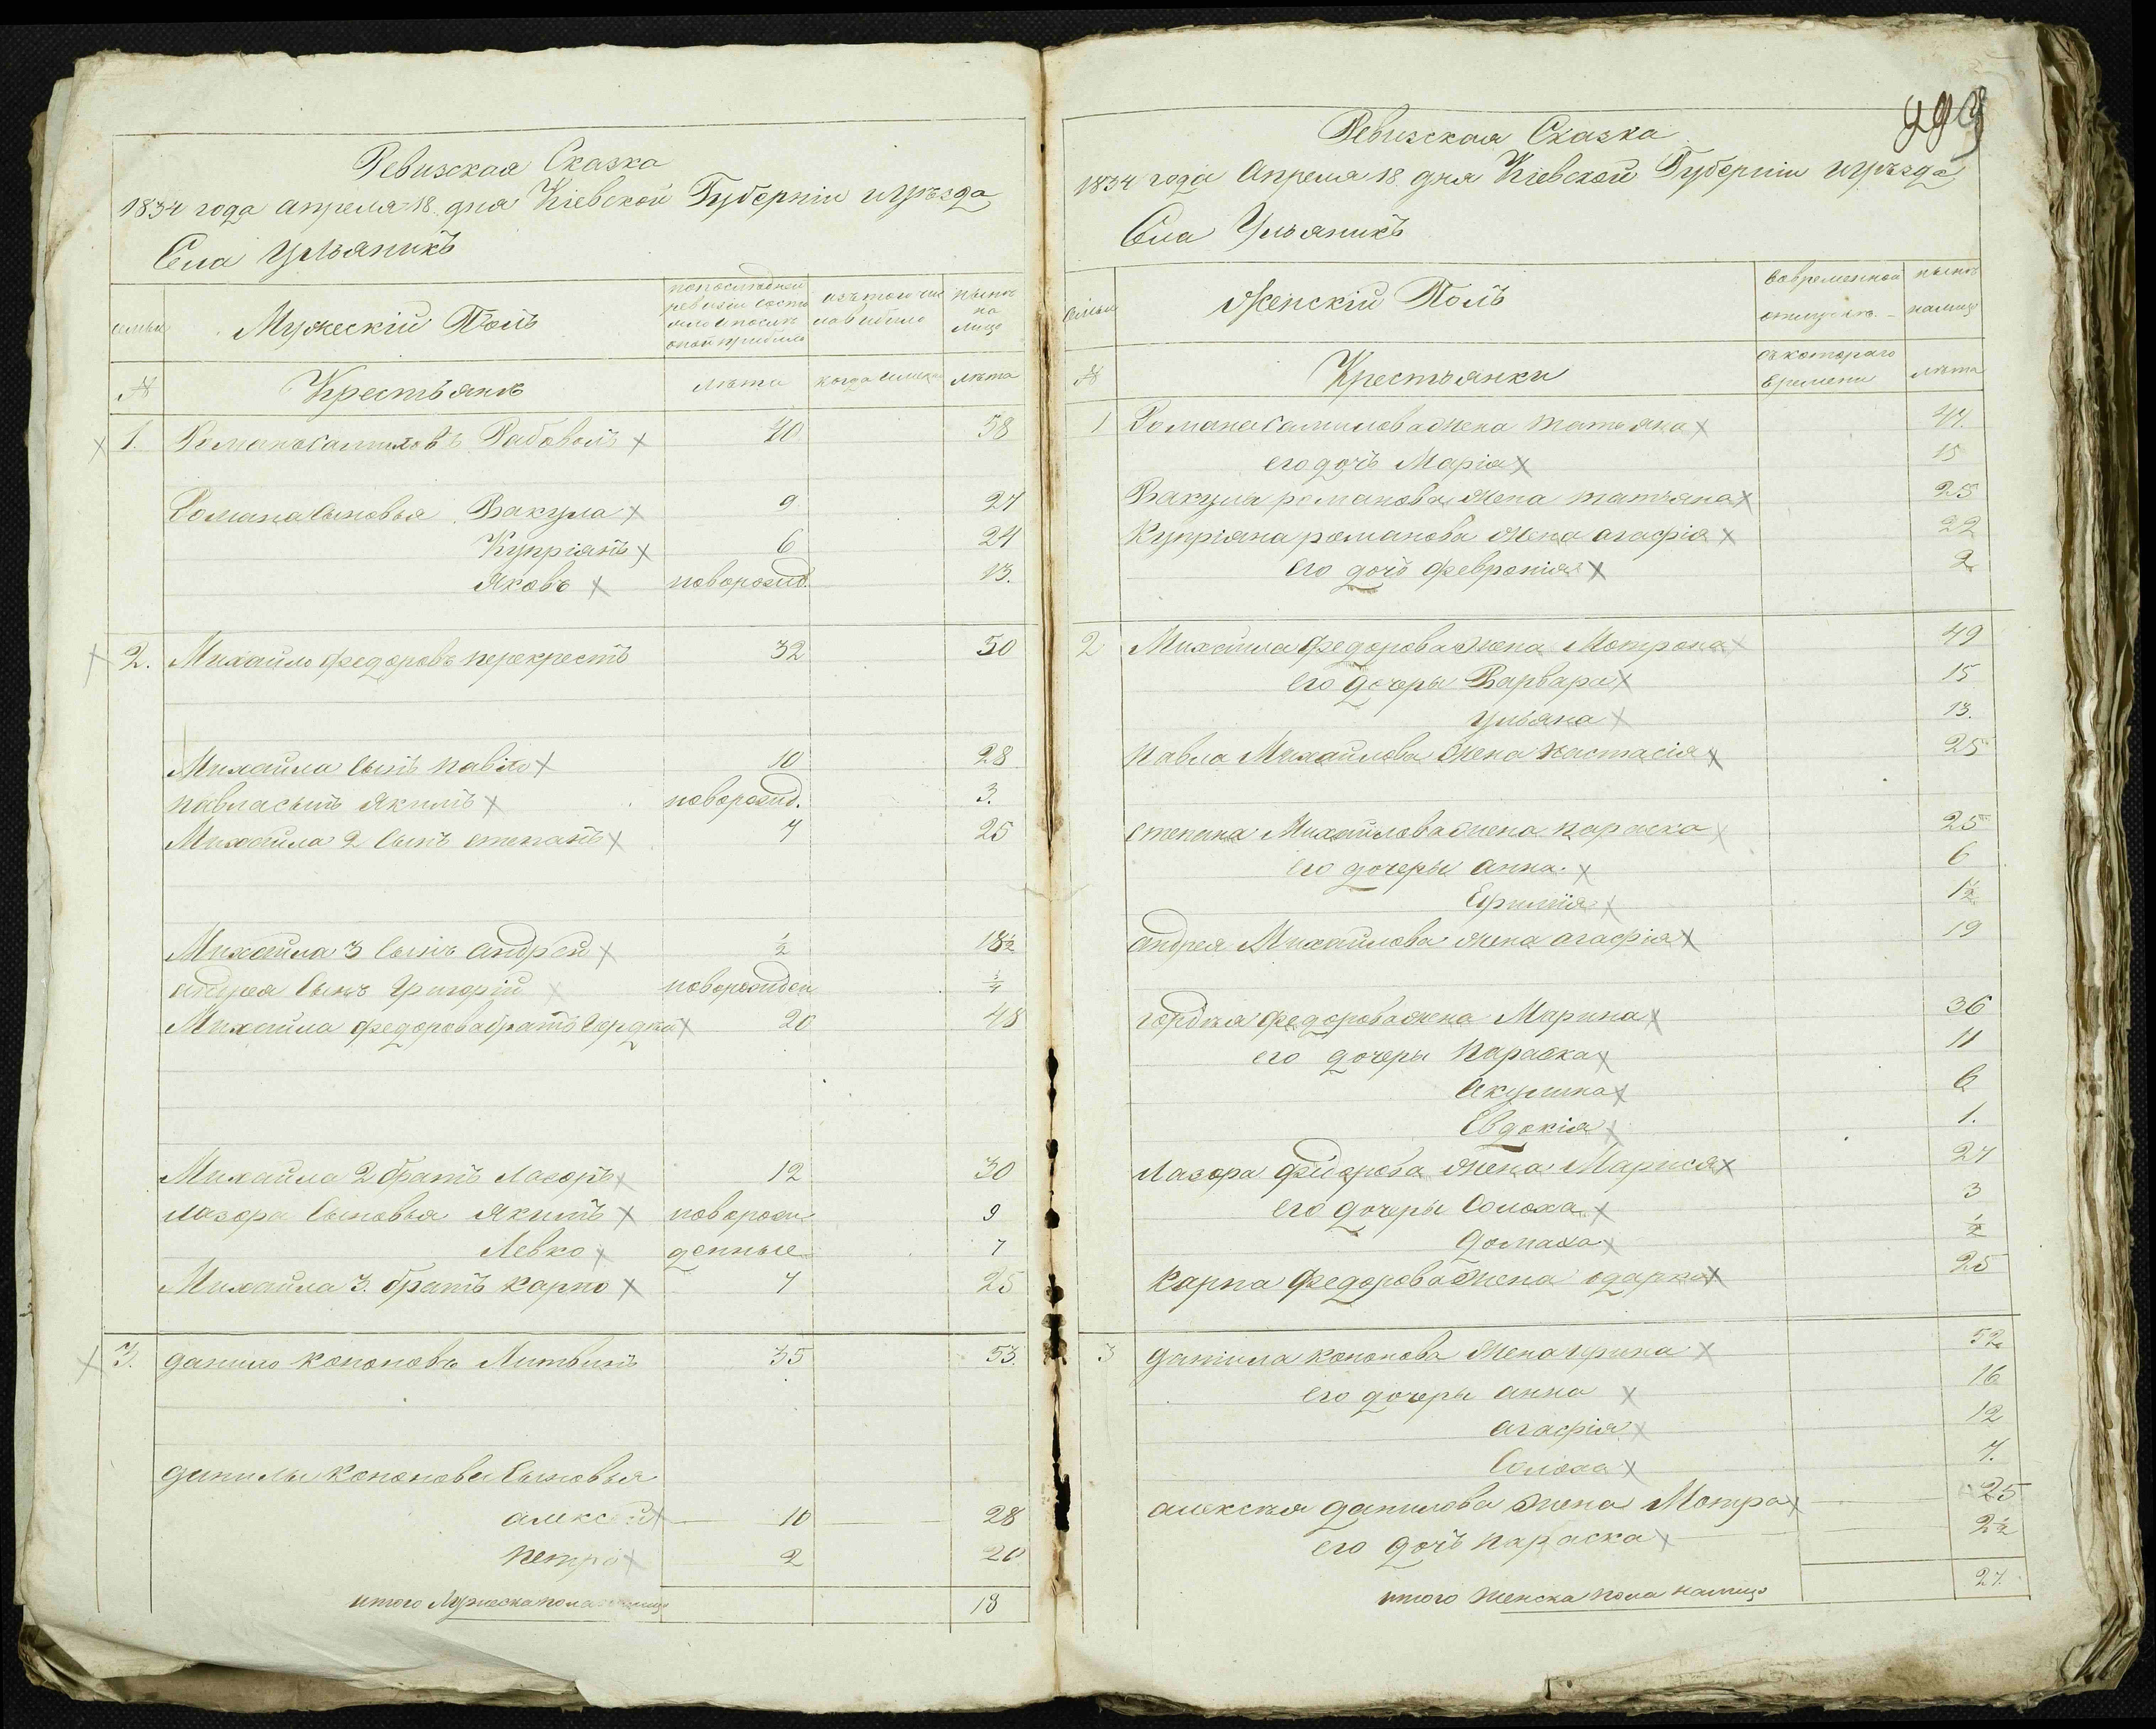 Ревизская Сказка
1834 года апреля 18. дня Кіевской Губерніи иуѣзда
Села Ульяникъ
семьи
Мужескій Полъ
попоследней
ревизіи состо
яло и послѣ
оной прибыло
изътого числа
выбыло
нынѣ
на
лицо
№
Крестьянѣ
лѣта
когда имена
лѣта
1. Романъ Самиловъ Рабоволъ 40 58
Романа Сыновья Вакула 9 27
Купріянъ 6 24
Яковъ новорожд. 13.
2. Михайло федоровъ перекрестъ 32 50
Михайла Сынъ павло 10 28
павла сынъ якимъ новорожд. 3.
Михайла 2 Сынъ степанъ 7 25
Михайла 3 Сынъ андрей ½ 18½
андрея Сынъ Григорій новорожден ¼
Михайла федорова братъ Гордѣй 20 48
Михайла 2 братъ Лазоръ 12 30
Лазора Сыновья якимъ новорож 9
Левко денные 7
Михайла 3. братъ карпо 7 25
3. данило кононовъ Литвинъ 35 53.
данилы кононова Сыновья
алексей 10 28
петро 2 20
итого Мужеска пола налицо 18
293
Ревизская Сказка
1834 года Апреля 18 дня Кіевской Губерніи иуѣзда
Села Ульяникъ
семьи
Женскій Полъ
вовременной
отлучкѣ.
нынѣ
налицо
№
Крестьянки
съкотораго
времени
лѣта
1 Романа Самилова жена татьяна 47.
его дочь Марія 15
Вакула романова жена татьяна 25
купріяна романова жена агафія 22
его дочь февронія 2
2 Михайла федорова жена Мотрона 49
его дочеры Варвара 15
ульяна 13.
павла Михайлова жена настасія 25
степана Михайлова жена параска 25
его дочеры анна. 6
Ефимія 1½
андрея Михайлова жена агафія 19
гордѣя федорова жена Марина 36
его дочеры параска 11
акулина 6
Евдокія 1.
Лазора федорова жена Марися 27
его дочеры Солоха 3
домаха ½
карпа федорова жена одарка 25
3 данила кононова жена ирина 52
его дочеры анна 16
агафія 12
Солоха 7.
алексѣя данилова жена Мотра 25
его дочь параска 2½
итого женска пола налицо 27.